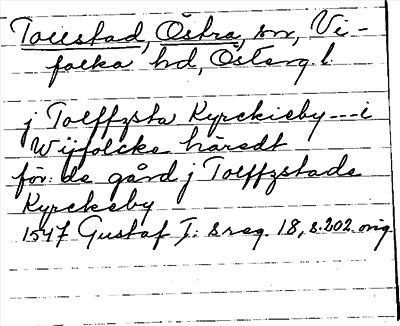 Tollstad, Östra, sn, Vi-
folka hd, Österg. l.
j Tolffzsta Kyrckieby --- i
Wijfolcke häredt
för: de gård j Tolffzstade
Kyrckeby
1547 Gustaf I: s reg. 18, s. 202 orig